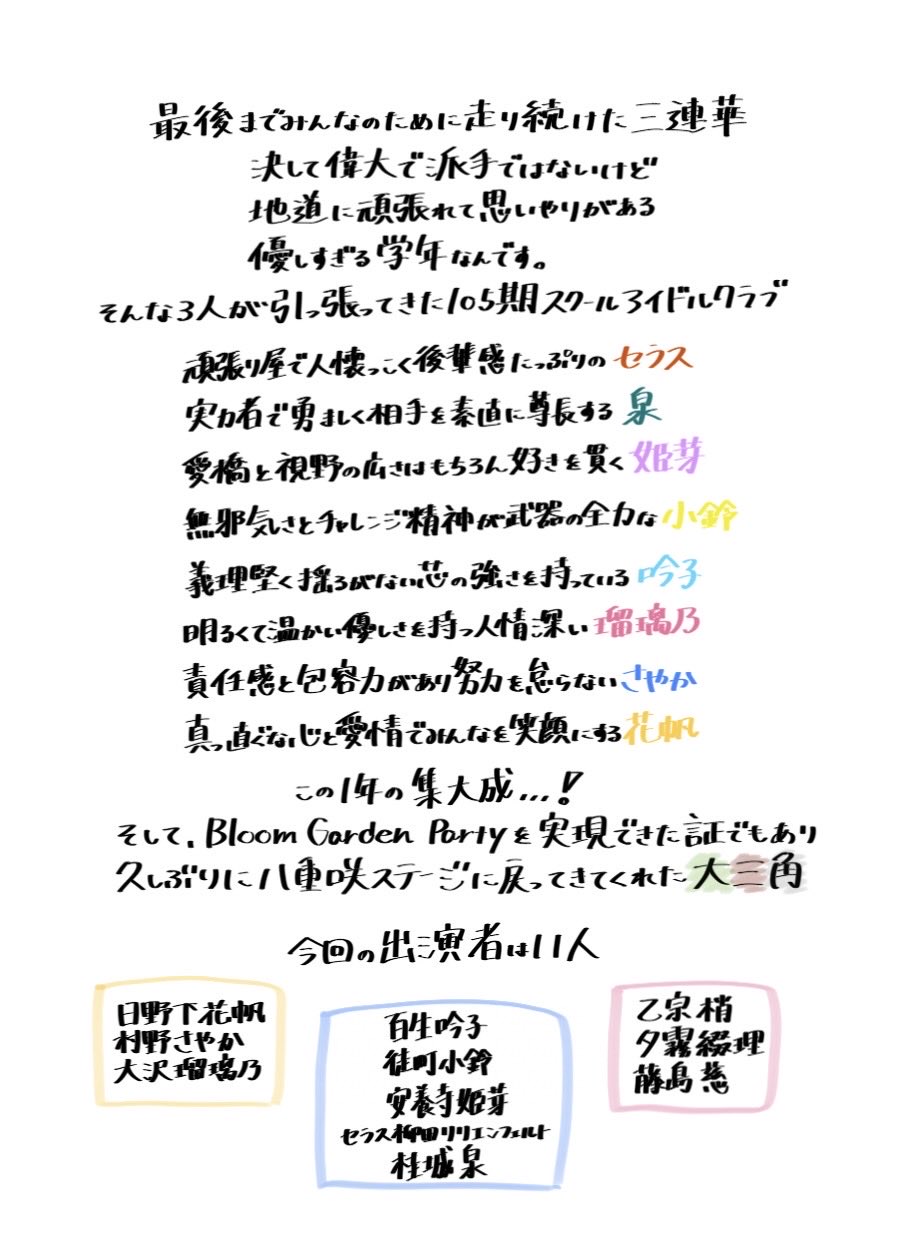 最後までみんなのために走り続けた三連華
決して偉大で派手ではないけど
地道に頑張れて思いやりがある
優しすぎる学年なんです。
そんな3人が引っ張ってきた105期スクールアイドルクラブ
頑張り屋で人懐っこく後輩感たっぷりのセラス
実力者で勇ましく相手を素直に尊長する泉
愛橋と視野の広さはもちろん好きを貫く姫芽
無邪気さとチャレンジ精神が武器の全力な小鈴
義理堅く揺るがない芯の強さを持っている吟子
明るくて温かい優しさを持つ人情深い瑠璃乃
責任感と包容力があり努力を怠らないさやか
真っ直ぐな心と愛情でみんなを笑顔にする花帆
この1年の集大成...!
そして、Bloom Garden Partyを実現できた証でもあり
久しぶりに八重咲ステージに戻ってきてくれた大三角
今回の出演者は11人
日野下花帆
村野さやか
大沢瑠璃乃
百生吟子
徒町小鈴
安養寺姫芽
セラス柳田リリエンフェルト
桂城泉
乙宗梢
夕霧綴理
藤島慈